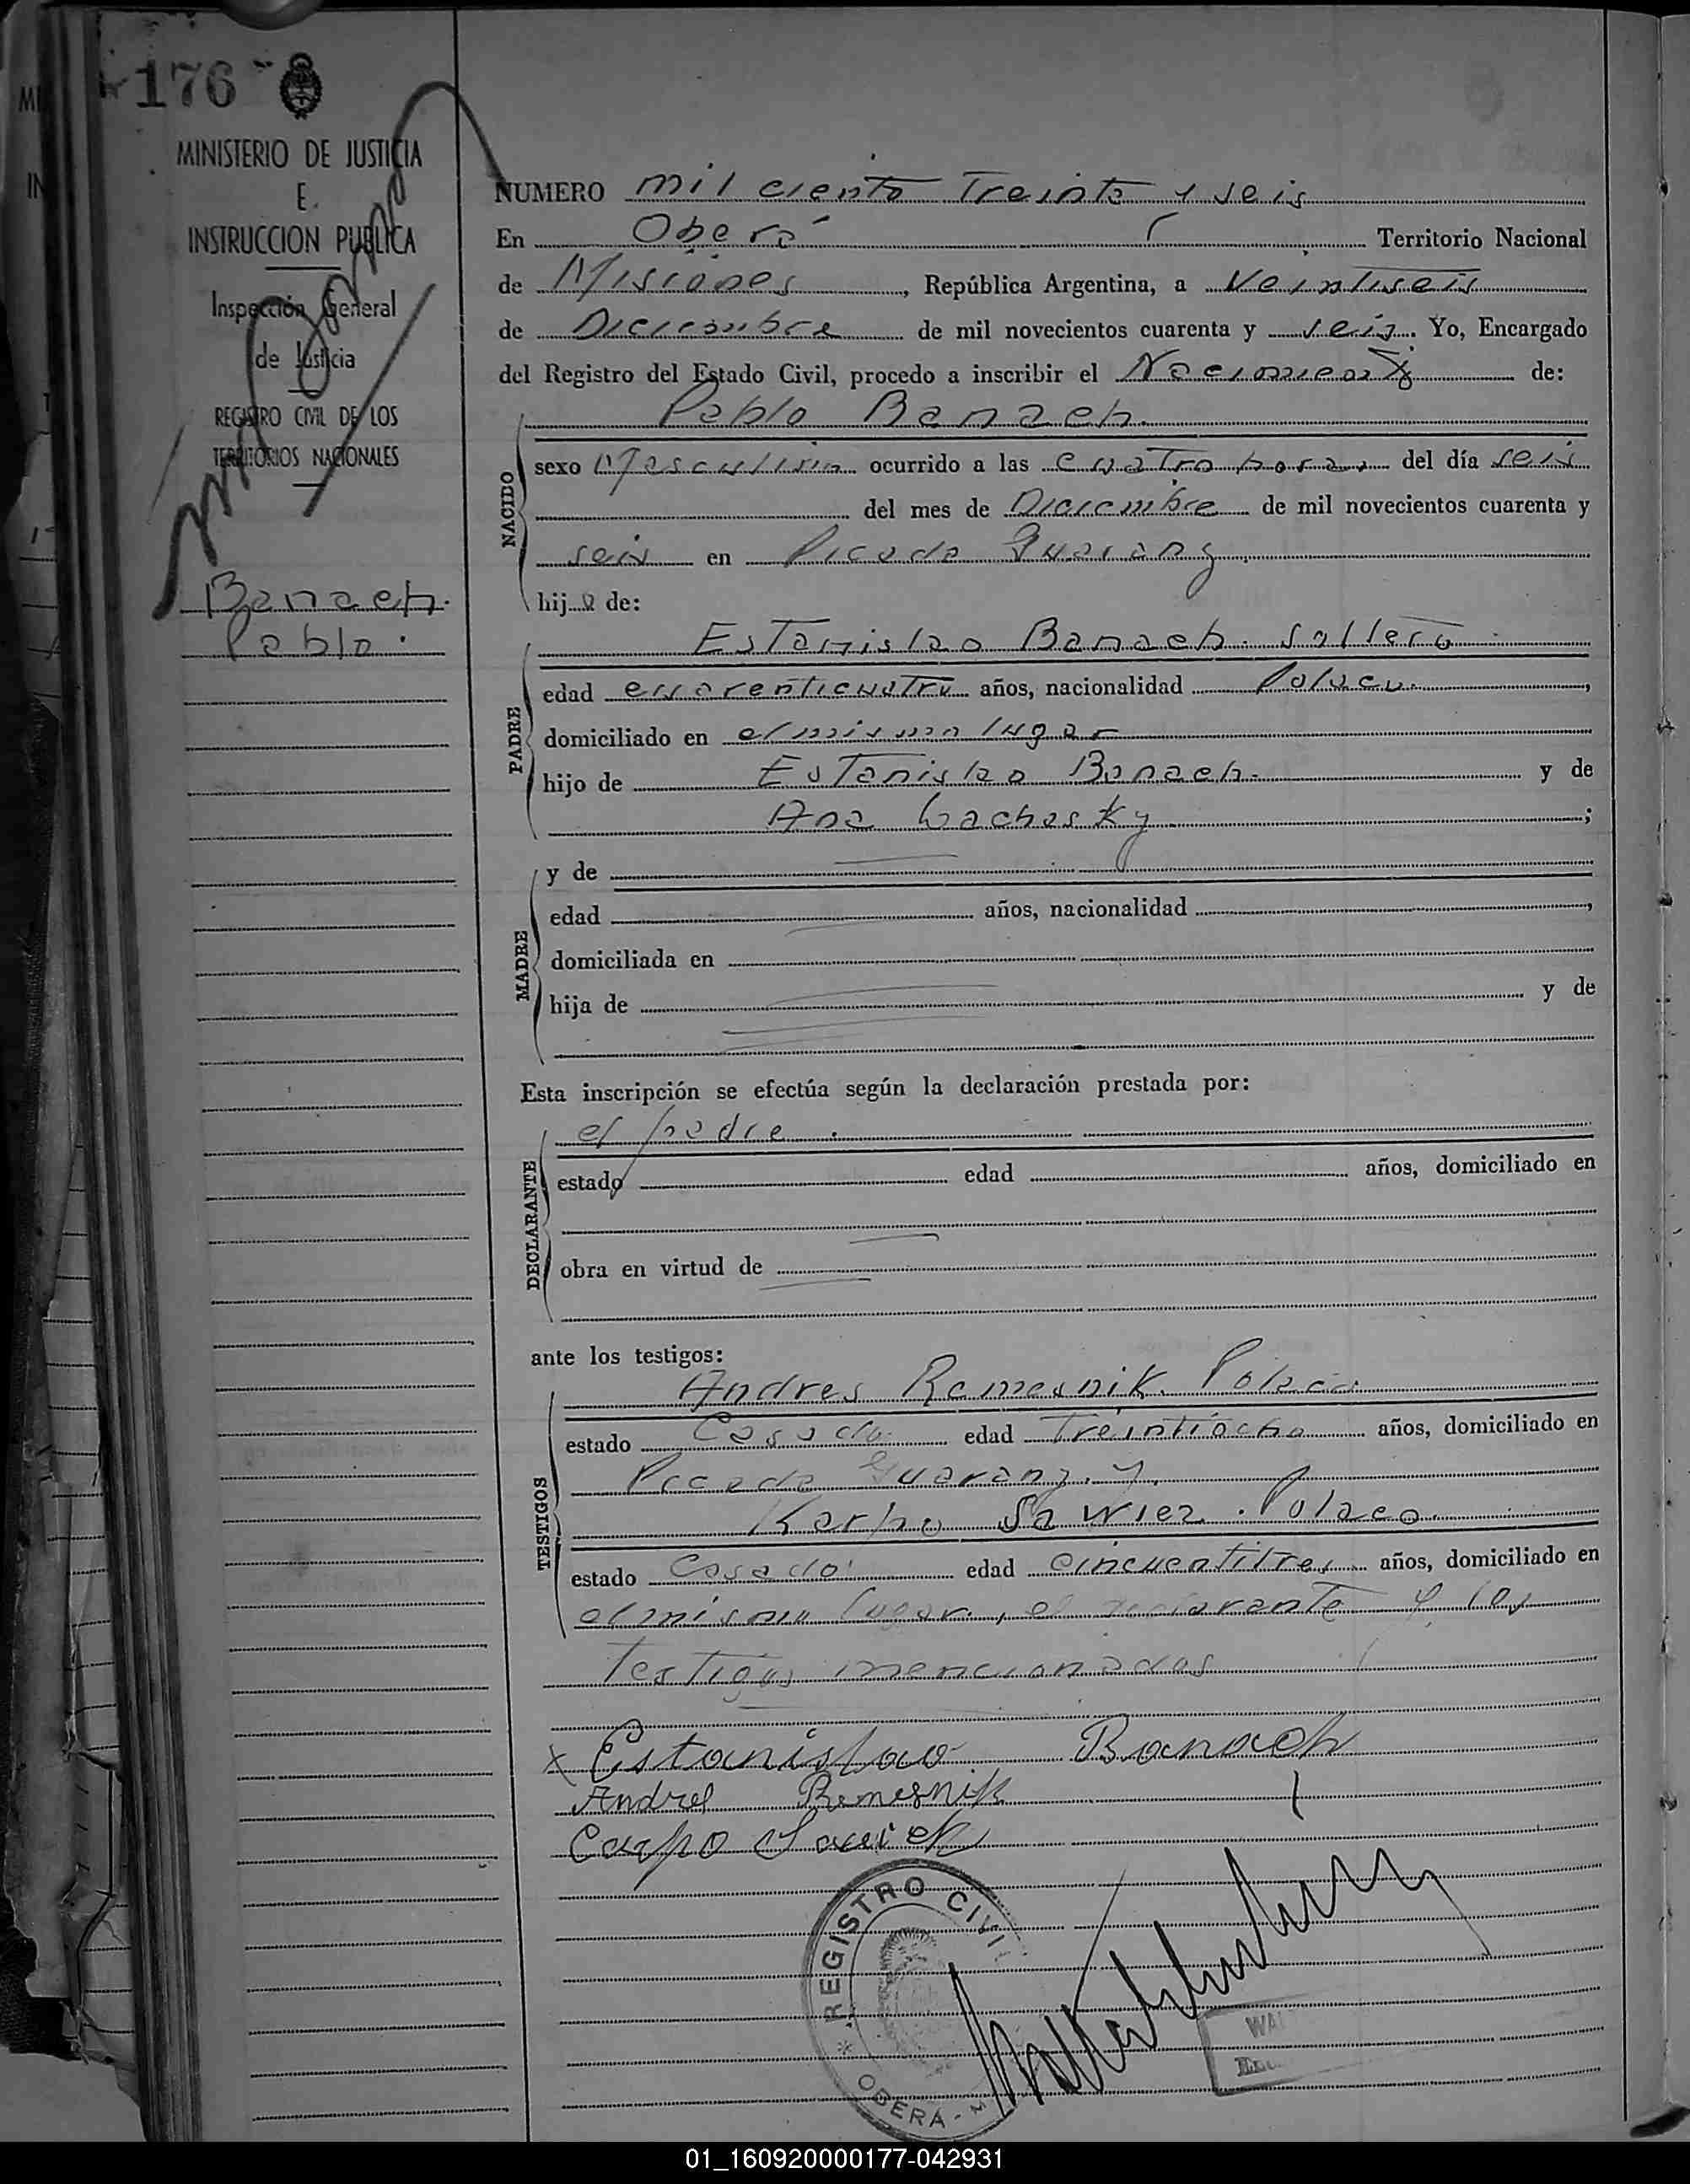 176
MINISTERIO DE JUSTICIA
E
INSTRUCCION PUBLICA
Inspección General
de Justicia
REGISTRO CIVIL DE LOS
TERRITORIOS NACIONALES
Banach.
Pablo.
NUMERO mil ciento Treinta y seis
En Oberá Territorio Nacional
de Misiones, República Argentina, a Veintiseis
de Diciembre de mil novecientos cuarenta y seis. Yo, Encargado
del Registro del Estado Civil, procedo a inscribir el Nacimiento de:
Pablo Banach.
NACIDO
sexo Masculino ocurrido a las cuatro horas, del día seis
del mes de Diciembre de mil novecientos cuarenta y
seis en Picada Guarany
hijo de:
PADRE
Estanislao Banach. soltero
edad cuarenticuatro años, nacionalidad Polaco.,
domiciliado en el mismo lugar
hijo de Estanislao Banach. y de
Ana Wachosky;
MADRE
y de
edad años, nacionalidad ,
domiciliada en
hija de y de
Esta inscripción se efectúa según la declaración prestada por:
DECLARANTE
el padre.
estado edad años, domiciliado en
obra en virtud de
ante los testigos:
TESTIGOS
Andres Remesnik. Polaco
estado Casado. edad Treintiocho años, domiciliado en
Picada Guarany. y.
Karpo Sawiez. Polaco.
estado Casado edad cincuentitres años, domiciliado en
el mismo lugar., el declarante y los
Testigos mencionados
x Estanislao Banach
Andres Remesnik
Carpo
REGISTRO CIVIL
OBERA - M
WAL
01_160920000177-042931